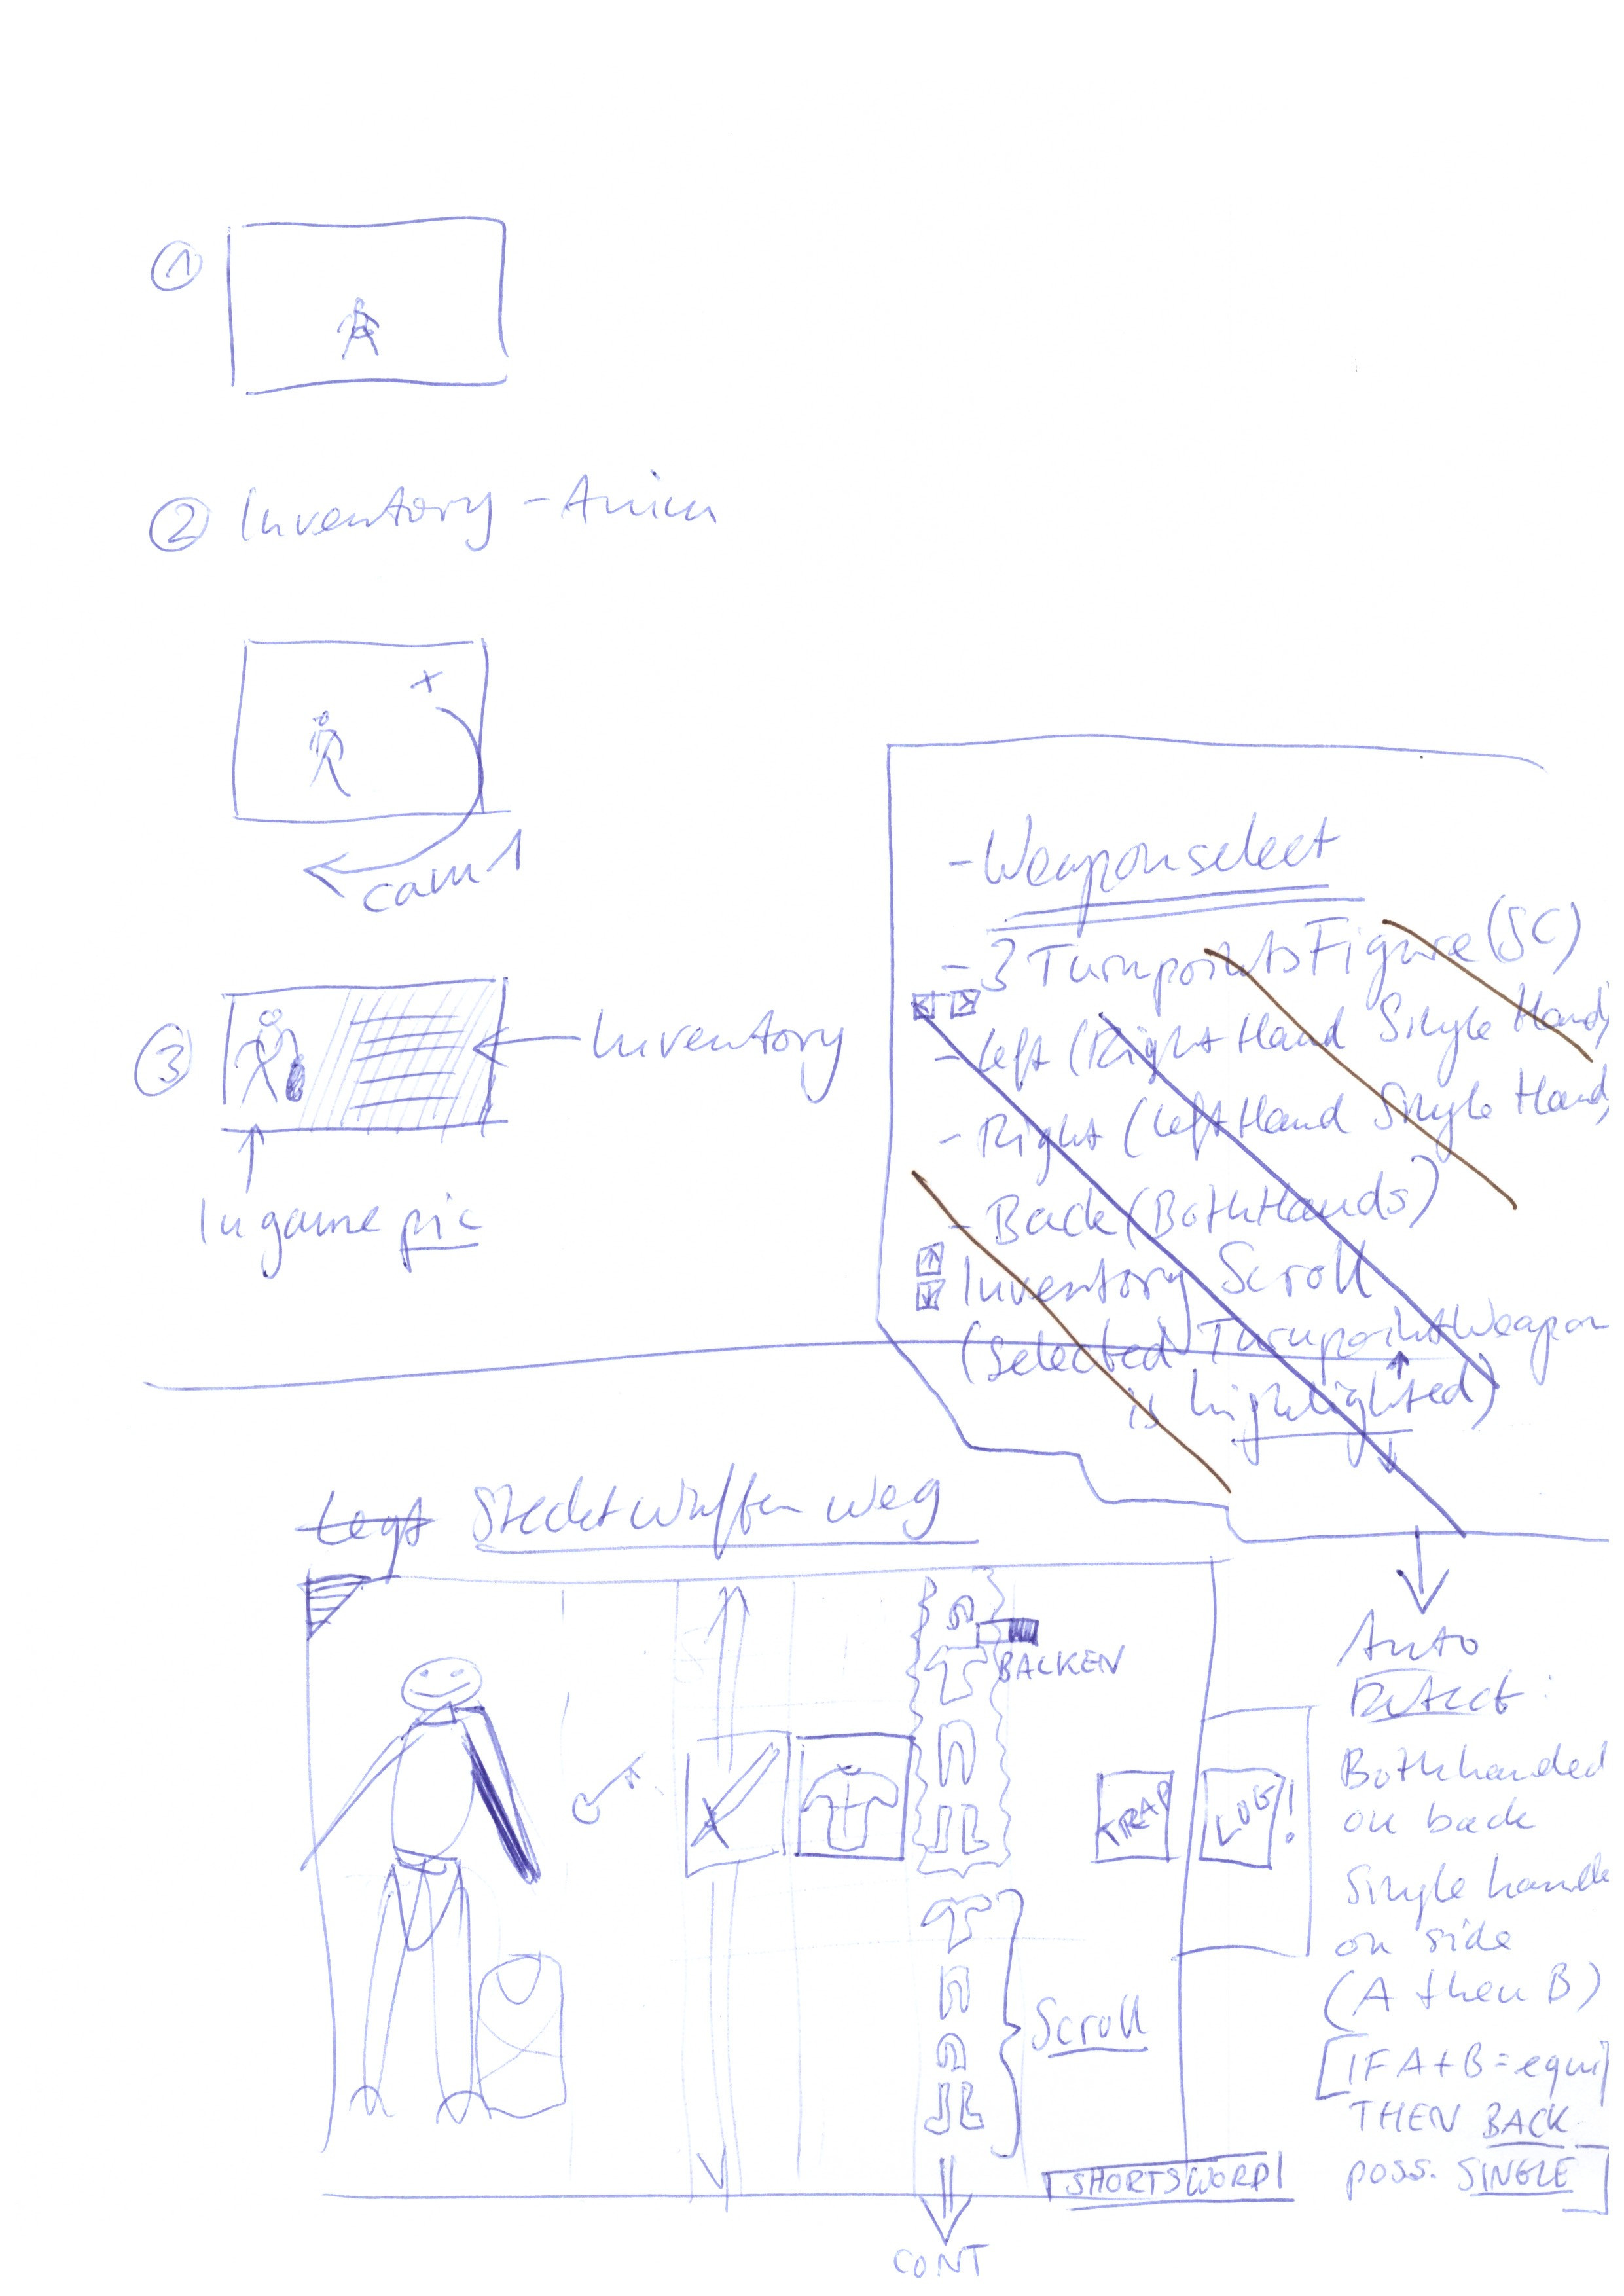 1
2 Inventory - Anim
cam 1
3
Inventory
Ingame pic
- Weaponselect
- 3 Turnpoints Figure (SC)
- Left (Right Hand Single Hand)
- Right (Left Hand Single Hand)
- Back (Both Hands)
Inventory Scroll
(Selected Turnpoint Weapon
is highlighted)
Legt Steckt Waffen weg
BALKEN
TRAP
LUG!
Scroll
SHORTSWORD
CONT
Auto
Detect:
Bothhanded
on back
Single hande
on side
(A then B)
[IF A+B = equi
THEN BACK
POSS. SINGLE]